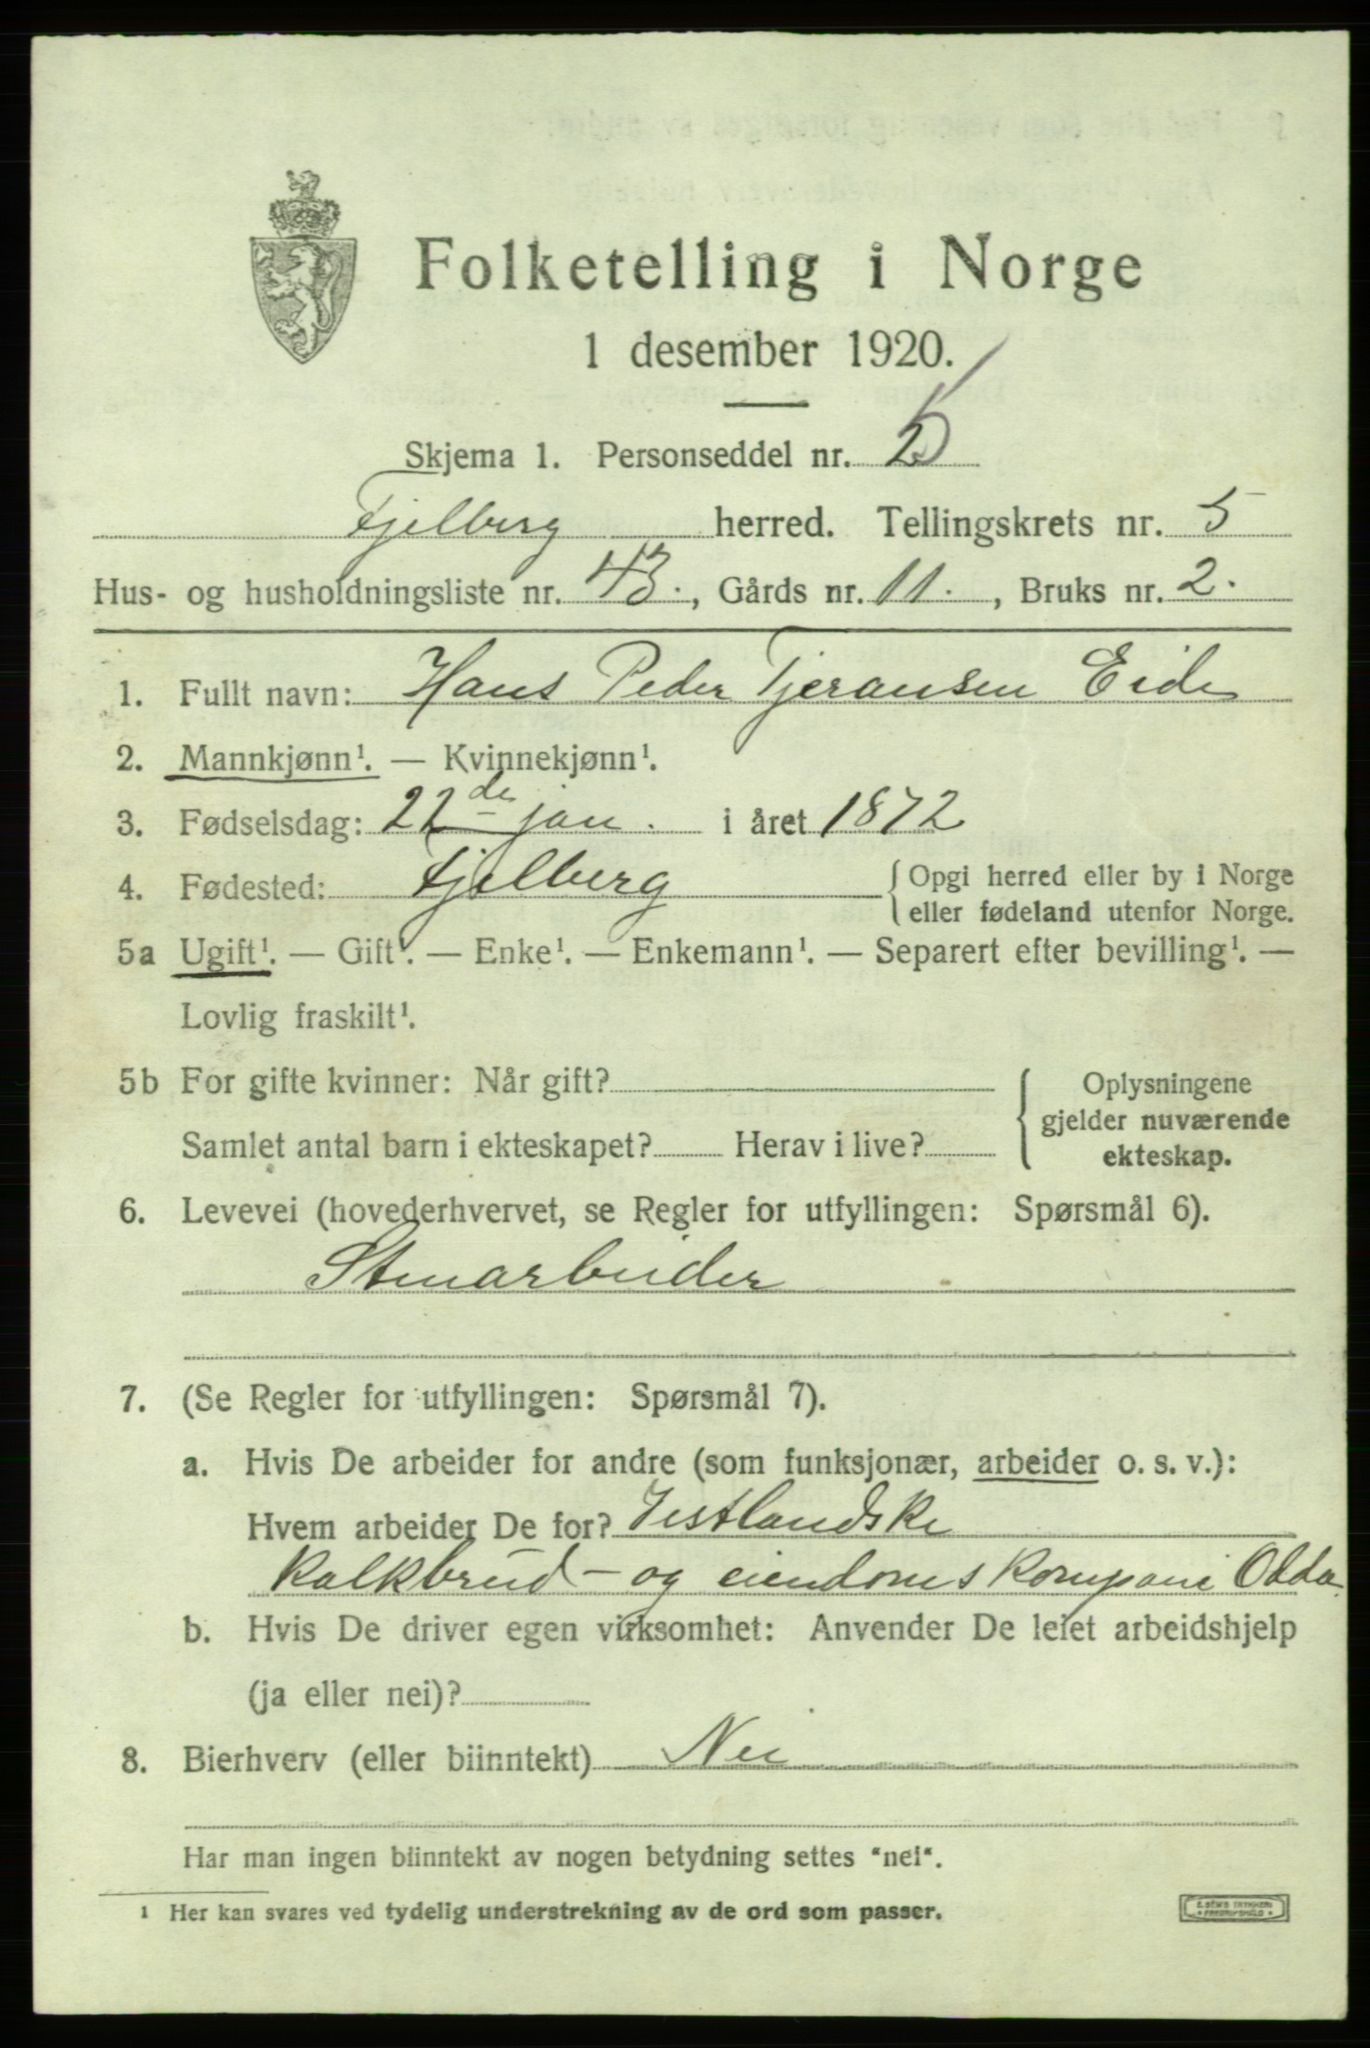 Folketelling i Norge
1 desember 1920.
Skjema 1. Personseddel nr. 2
Fjelberg herred. Tellingskrets nr. 5
Hus- og husholdningsliste nr. 43., Gårds nr. 11., Bruks nr. 2.
1. Fullt navn: Hans Peder Tjeransen Eide
2. Mannkjønn¹. — Kvinnekjønn¹.
3. Fødselsdag: 22de jan. i året 1872
4. Fødested: Fjelberg { Opgi herred eller by i Norge
eller fødeland utenfor Norge.
5a Ugift¹. — Gift¹. — Enke¹. — Enkemann¹. — Separert efter bevilling¹. —
Lovlig fraskilt¹.
5b For gifte kvinner: Når gift? { Oplysningene
gjelder nuværende
Samlet antal barn i ekteskapet? Herav i live? ekteskap.
6. Levevei (hovederhvervet, se Regler for utfyllingen: Spørsmål 6).
Stenarbeider
7. (Se Regler for utfyllingen: Spørsmål 7).
a. Hvis De arbeider for andre (som funksjonær, arbeider o. s. v.):
Hvem arbeider De for? Vestlandske
kalkbrud- og eiendoms kompani Odda.
b. Hvis De driver egen virksomhet: Anvender De leiet arbeidshjelp
(ja eller nei)?
8. Bierhverv (eller biinntekt) Nei
Har man ingen biinntekt av nogen betydning settes "nei".
¹ Her kan svares ved tydelig understrekning av de ord som passer.